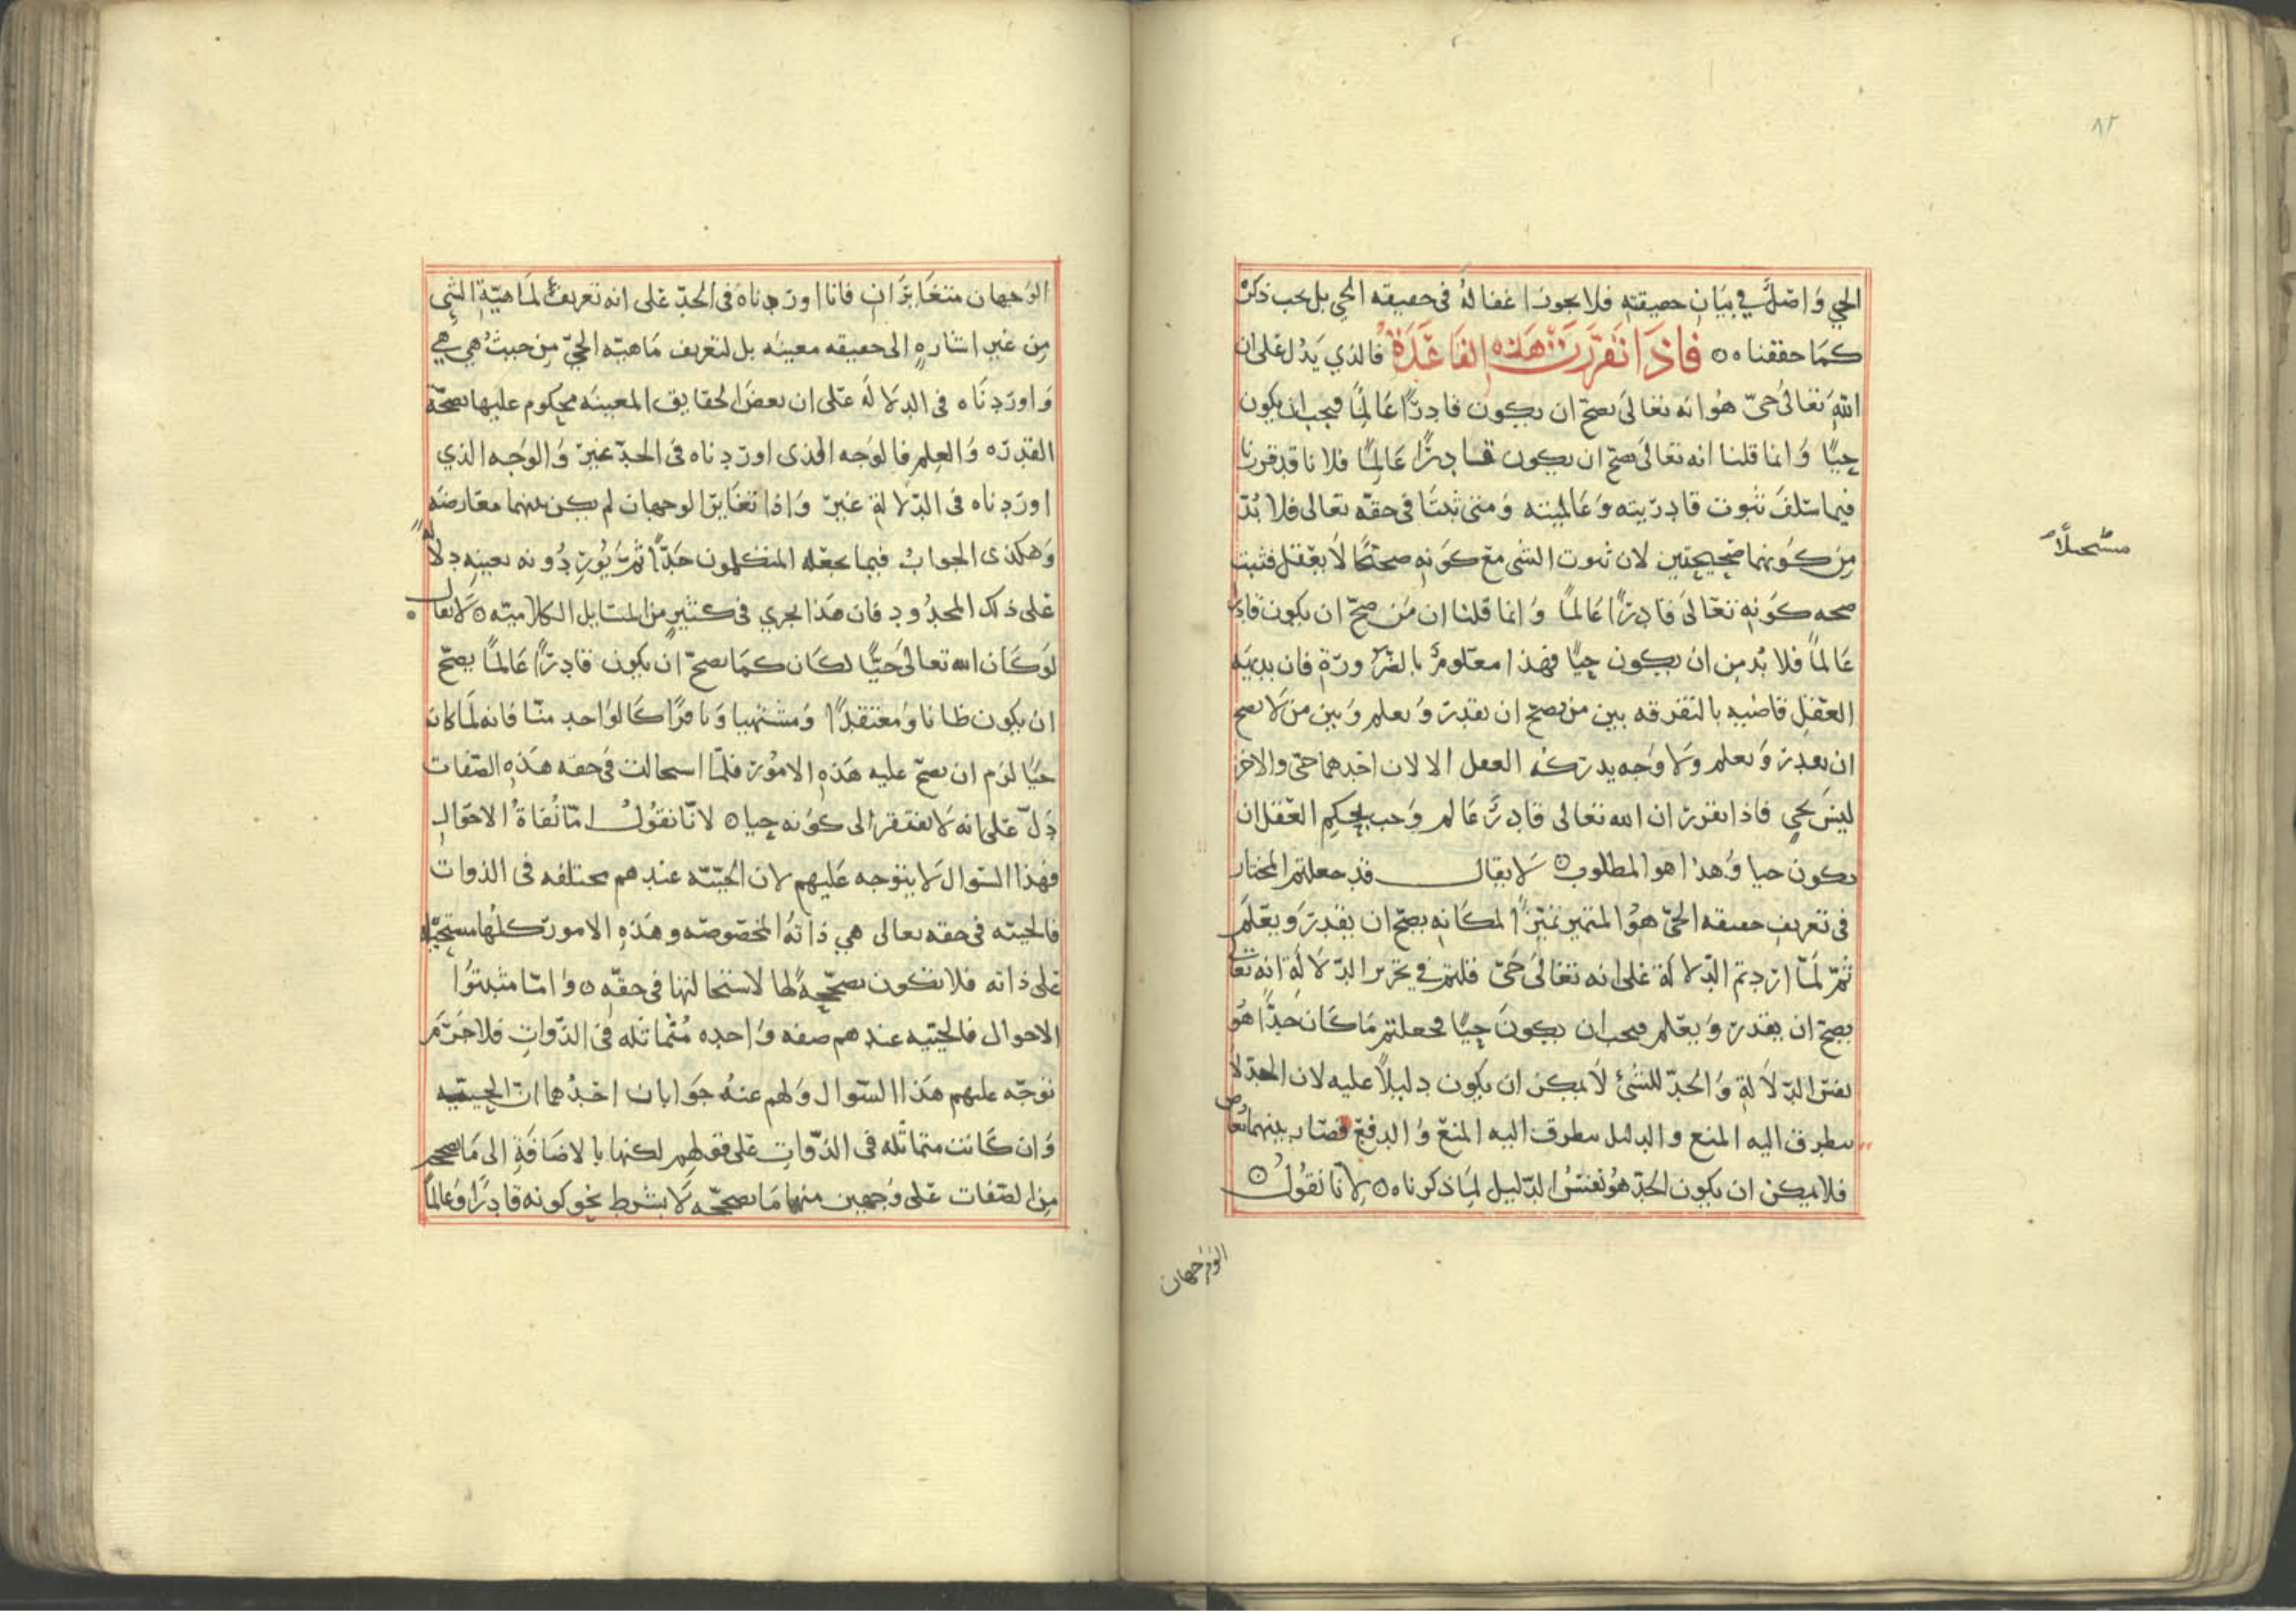 ٨٢
الحي وَاصْلٌ في بيَان حقيقته فلا يجوز اغفاله فى حقيقه الحي بل يجب ذكره
كمَا حققنا ه فاذَا تَقَرَّرَتْ هَذه القَاعَدَةُ فالذي يَدُل عَلى ان
الله تعَالىَ حىّ هُوَ انه تعَالىَ يصحّ ان يكون قادِرًا عَالمًا فيجب ان يكون
حيًّا وَانما قلنا انه تعَالىَ يصحّ ان يكون قادِرًا عَالمًا فلانا قد قررنا
فيما سَلفَ ثبوت قادِرّيته وَعَالميته وَمتى ثبتَا فى حقّه تعالى فلا بُدّ
مِن كوْنهما صَحيحتين لان ثبوت الشى مع كوَنهِ مستحيلاً لا يعْقل فثبت
صحه كوَنهِ تعَالىَ قادِرًا عَالمًا وَانما قلنا ان مَن صحّ ان يكون قادِرا
عَالمًا فلا بُد مِن ان يكون حيًّا فهذا معلومٌ بالضّرورَةِ فان بديهَه
العَقلِ قاضيه بالتفرقه بين من يصحّ ان يقدِرَ وَيعلم وَبين من لَا يصح
ان يقدر وَيعلم وَلا وَجه يدركه العقل الا لان احَدهما حيّ والاخر
ليسَ بحيٍ فاذا تقرر ان الله تعَالى قادِرٌ عَالم وَجب بحكِم العَقل ان
يكون حيا وَهذا هو المطلوب ۞ لَا يقال قد جعلتم المختار
فى تعريفِ حقيقه الحىّ هوُ المتميز تميّزًا لمكَانهِ يصحّ ان يقدِرَ وَيعْلَمَ
ثمّ لمّا ارَدتم الدّلالَة عَلى انه تعَالىَ حَىّ قلتم في تحرير الدّلَالَةِ انه تعَالى
يصحّ ان يقدرَ وَيعْلم فيجب ان يكونَ حيًّا فجعلتم مَا كَانَ حَدًّا هُوَ
نفسَ الدّلَالَةِ وَالحَدّ للشئِ لَا يمكن ان يكون دليلًا عليه لان الحَدّ لَا
يتطرق اليه المنع والدليل يتطرق اليه المنعَ وَالدفعَ فصَار بينهما تعَارض
فلا يمكن ان يكون الحَدّ هوُ نفسُ الدّليل لِمَا ذكرناه ۞ لِانا نقُولُ ۞
مسْتحيلًا
الوَجهان
الوَجهان متغَايَرَانِ فانا اورَدناهُ فى الحَدّ عَلى انه تعريفٌ لمَاهيّةِ الشىِ
مِن غيرِ اشارهٍ الى حقيقه معينه بل لتعريف مَاهيّه الحيّ مِن حيثُ هي هي
وَاورَدنَاه فى الدلَالَه عَلى ان بعضَ الحقايق المعينَه محكوم عليها بصحّة
القدرَه وَالعِلمِ فالوَجه الذى اورَدناه فى الحدّ غيرَ وَالوَجه الذي
اورَدناه فى الدّلالَةِ غيرَ وَاذا تغَايرَ الوجهان لم يكن بينهما معَارضَه
وَهكذى الجوابُ فيما يجعَله المتكلمون حَدًّا ثمّ يُورِدُونه بعينهِ دِلَالَه
عَلى ذلك المحدُود فان هَذا يجري فى كثيرٍ من المسَايل الكلاميّه ۞ لَا يقال
لوَ كَان الله تعَالىَ حَيًّا لكَان كمَا يصحّ ان يكون قادِرًا عَالمًا يصحّ
ان يكون ظانا وُمعتقدًا وَمشتهيا وَنافرًا كَالوَاحدِ منّا فانه لَمَا كانَ
حيًّا لزم ان يصحّ عليه هَذهِ الامُور فلمّا استحالت فى حقه هَذهِ الصّفات
دَلّ عَلى انه لَا يفتقر الى كوْنه حيا ۞ لانّا نقُولُ امّا نُفاةُ الاحوَالِ
فهَذا السّوال لَا يتوَجه عَليهم لان الحيّيّه عندهم مختلفه فى الذوات
فالحييّه فى حقه تعالى هي ذاتهُ المخصوصَه وهَذهِ الامور كلهَا مسْتحيله
عَلى ذاته فلا تكون مصحّحةً لها لاستحالتها فى حقّه ۞ وَامّا مثبتوُا
الاحوال فالحييّه عندهم صفه وَاحده مُتماثله فى الذّواتِ فلا جَرَم
توَجّه عليهم هَذا السّوال وَلهم عنهُ جوَابان احَدُهما ان الحييّه
وَان كَانت متماثله فى الذّواتِ عَلى قولهِم لكنها بالاضَافَةِ الى مَا تصححه
مِن الصّفات عَلى وَجهين منها مَا تصحّحه لَا بشرط نحو كونه قادِرًا وَعَالمًا